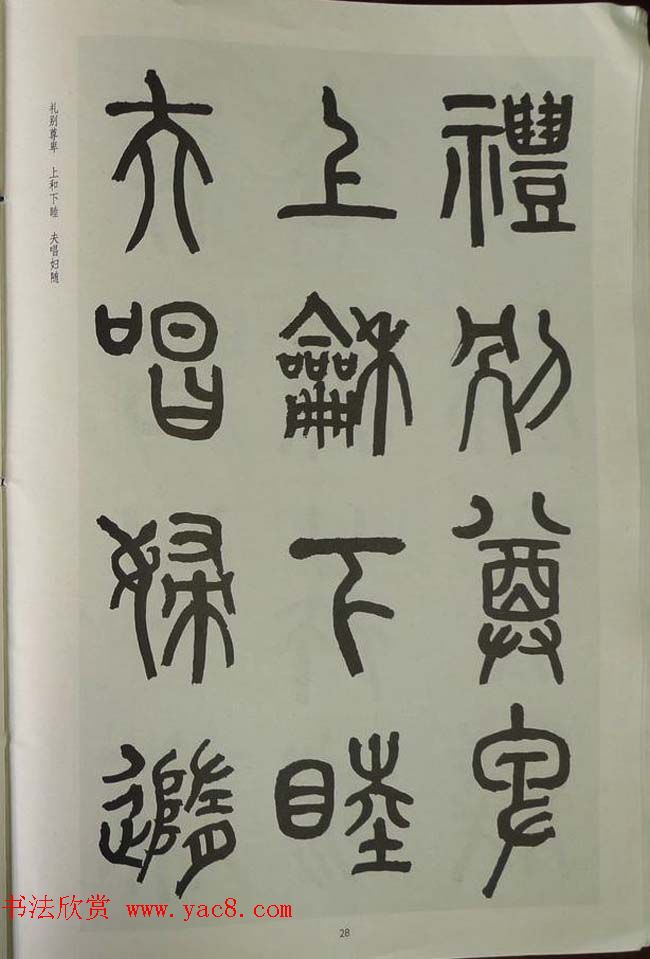 禮別尊卑
上龢下睦
夫唱婦隨
礼别尊卑 上和下睦 夫唱妇随
书法欣赏 www.yac8.com
28